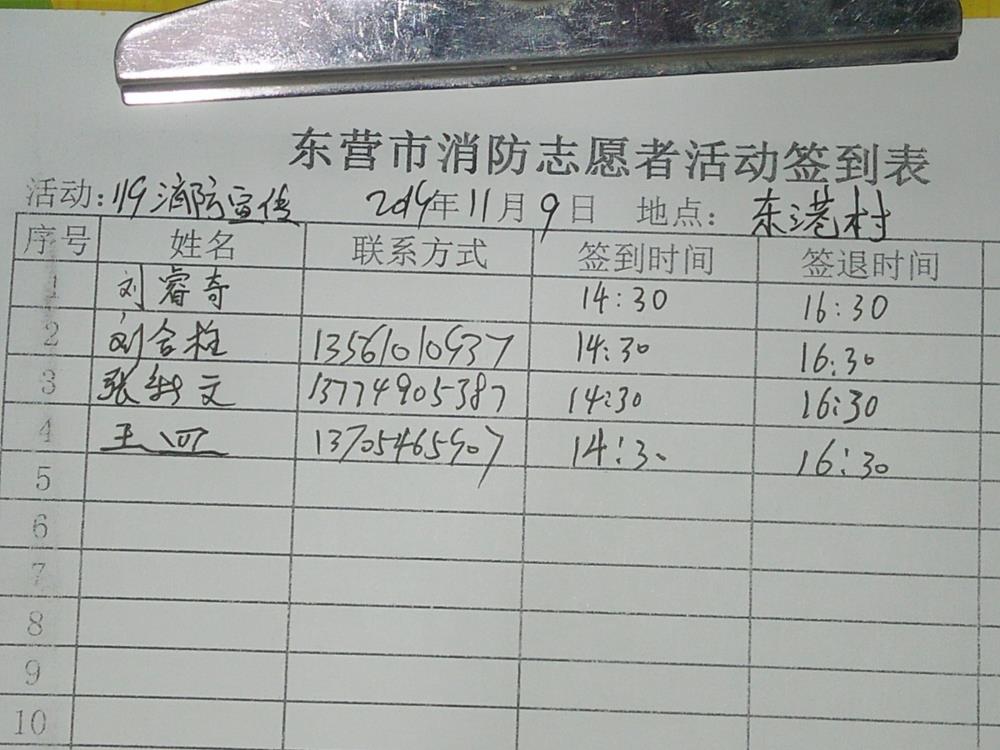 东营市消防志愿者活动签到表
活动：119消防宣传 2019年11月9日 地点：东港村
序号 姓名 联系方式 签到时间 签退时间
1 刘睿奇 14:30 16:30
2 刘合柱 13561010937 14:30 16:30
3 张 文 13774905387 14:30 16:30
4 王 13705465907 14:30 16:30
5
6
7
8
9
10